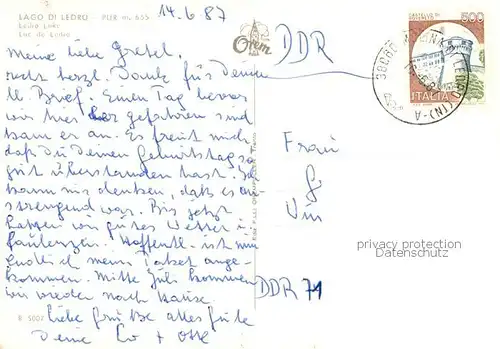 LAGO DI LEDRO - PIEVE m. 655
Ledro Lake
Lac de Ledro
14.6.87
Meine liebe Gretel,
recht herzl. Dank für Deinen
lb. Brief. Einen Tag bevor
wir hier her gefahren sind
kam er an. Es freut mich
daß Du Deinen Geburtstag so
gut überstanden hast. Ich
kann mir denken, daß es an-
strengend war. Bis jetzt
hatten wir gutes Wetter z.
faulenzen. Hoffentl. ist nun
endlich mein Paket ange-
kommen. Mitte Juli kommen
wir wieder nach Hause.
Liebe Grüße alles Gute
Deine + Otto
DDR
500
ITALIA
Frau
DDR 71
privacy protection
Datenschutz